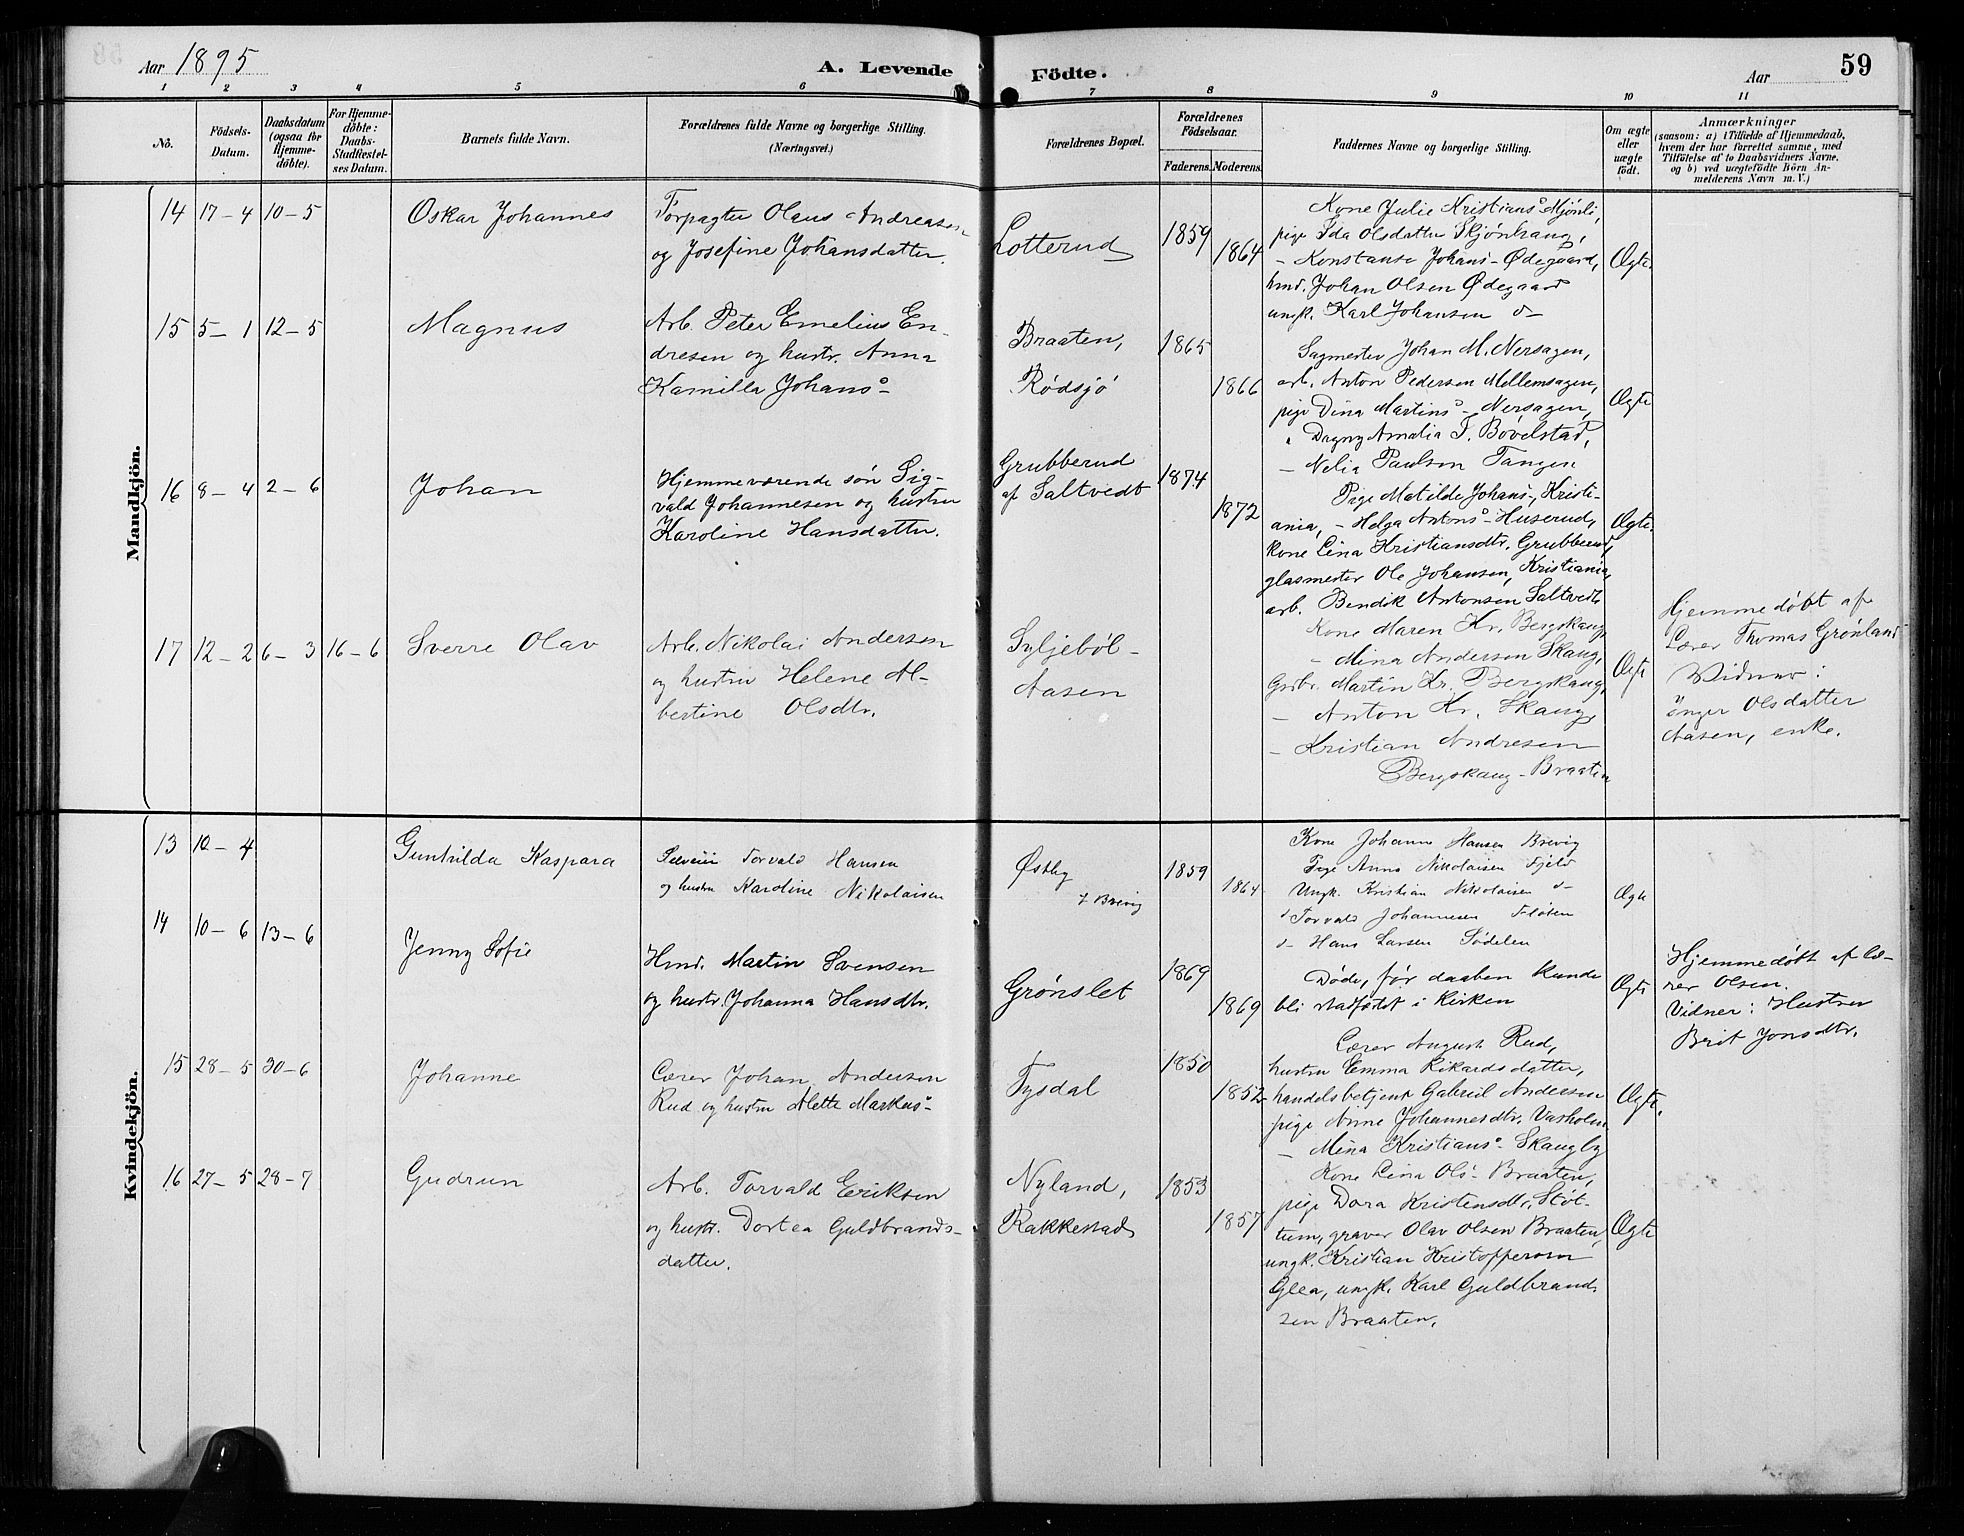 Aar 1895
A. Levende
Födte.
Aar
59
1 2 3 4 5 6 7 8 9 10 11
No.
Födsels-
Datum.
Daabsdatum
(ogsaa for
Hjemme-
döbte).
For Hjemme-
döbte:
Daabs-
Stadfæstel-
ses Datum.
Barnets fulde Navn.
Forældrenes fulde Navne og borgerlige Stilling.
(Næringsvei.)
Forældrenes Bopæl.
Forældrenes
Födselsaar.
Faderens. Moderens.
Faddernes Navne og borgerlige Stilling.
Om ægte
eller
uægte
födt.
Anmærkninger
(saasom: a) i Tilfælde af Hjemmedaab,
hvem der har forrettet samme, med
Tilföielse af to Daabsvidners Navne,
og b) ved uægtefödte Börn An-
melderens Navn m. V.)
Mandkjön.
14 17-4 10-5
Oskar Johannes
Forpagter Olaus Andreasen
og Josefine Johansdatter.
Lotterud
1859
1864
Kone Julie Kristians° Mjönli,
pige Ida Olsdatter Skjönhaug,
- Konstanse Johans- Ødegaard,
hmd. Johan Olsen Ødegaard
ungk. Karl Johansen d-
Ægte.
15 5-1 12-5
Magnus
Arb. Peter Emelius En-
dresen og hustr. Anna
Kamilla Johans°-
Braaten,
Rødsjö
1865
1866
Sagmester Johan M. Nersagen,
arb. Anton Pedersen Mellemsagen,
pige Dina Martins°- Nersagen,
" Dagny Amalia T. Bövelstad,
- Nelia Paulsen Tangen
Ægte
16 8-4 2-6
Johan
Hjemmeværende sön Sig-
vald Johannesen og hustru
Karoline Hansdatter.
Grubberud
af Saltvedt
1874
1872
Pige Matilde Johans-, Kristi-
ania, - Helga Antons°- Huserud,
kone Lina Kristiansdtr. Grubberud,
glasmester Ole Johansen, Kristiania,
arb. Bendik Antonsen Saltvedt
Ægte.
17 12-2 6-3 16-6
Sverre Olav
Arb. Nikolai Andersen
og hustru Helene Al-
bertine Olsdtr.
Syljeböl-
Aasen
Kone Maren Kr. Bergskaug,
- Mina Andersen Skaug,
Grbr. Martin Kr. Bergskaug,
- Anton Kr. Skaug,
- Kristian Andresen
Bergskaug-Braaten
Ægte
Hjemmedöbt af
Lærer Thomas Grönland
Vidner:
Inger Olsdatter
Aasen, enke.
Kvindekjön.
13 10-4
Gunhilda Kaspara
Torvald Hansen
og hustru Karoline Nikolaisen
Østby
Brevig
1859
1864
Kone Johanne Hansen Brevig
Pige Anna Nikolaisen Fjeld
Ungk. Kristian Nikolaisen d-
d- Torvald Johannesen Flöten
d- Hans Larsen Södelen
Ægte
14 10-6 13-6
Jenny Sofie
Hmd. Martin Svensen
og hustr. Johanna Hansdtr.
Grönslet
1869
1869
Döde, för daaben kunde
bli stadfæstet i kirken
Ægte
Hjemmedöbt af læ-
rer Olsen.
Vidner: Hustru
Brit Jonsdtr.
15 28-5 30-6
Johanne
Lærer Johan Andersen
Rud og hustru Alette Markus°-
Tysdal
1850
1852
Lærer August Rud,
hustru Emma Rikardsdatter,
handelsbetjent Gabriel Andersen
pige Anne Johannesdtr. Vasholm
- Mina Kristians°- Skaugby
Ægte.
16 27-5 28-7
Gudrun
Arb. Torvald Eriksen
og hustr. Dortea Guldbrands-
datter.
Nyland,
Rakkestad
1853
1857
Kone Lina Ols- Braaten,
pige Dora Kristensdtr. Stöt-
tum, graver Olav Olsen Braaten,
ungk. Kristian Kristoffersen
Glea, ungk. Karl Guldbrand-
sen Braaten.
Ægte